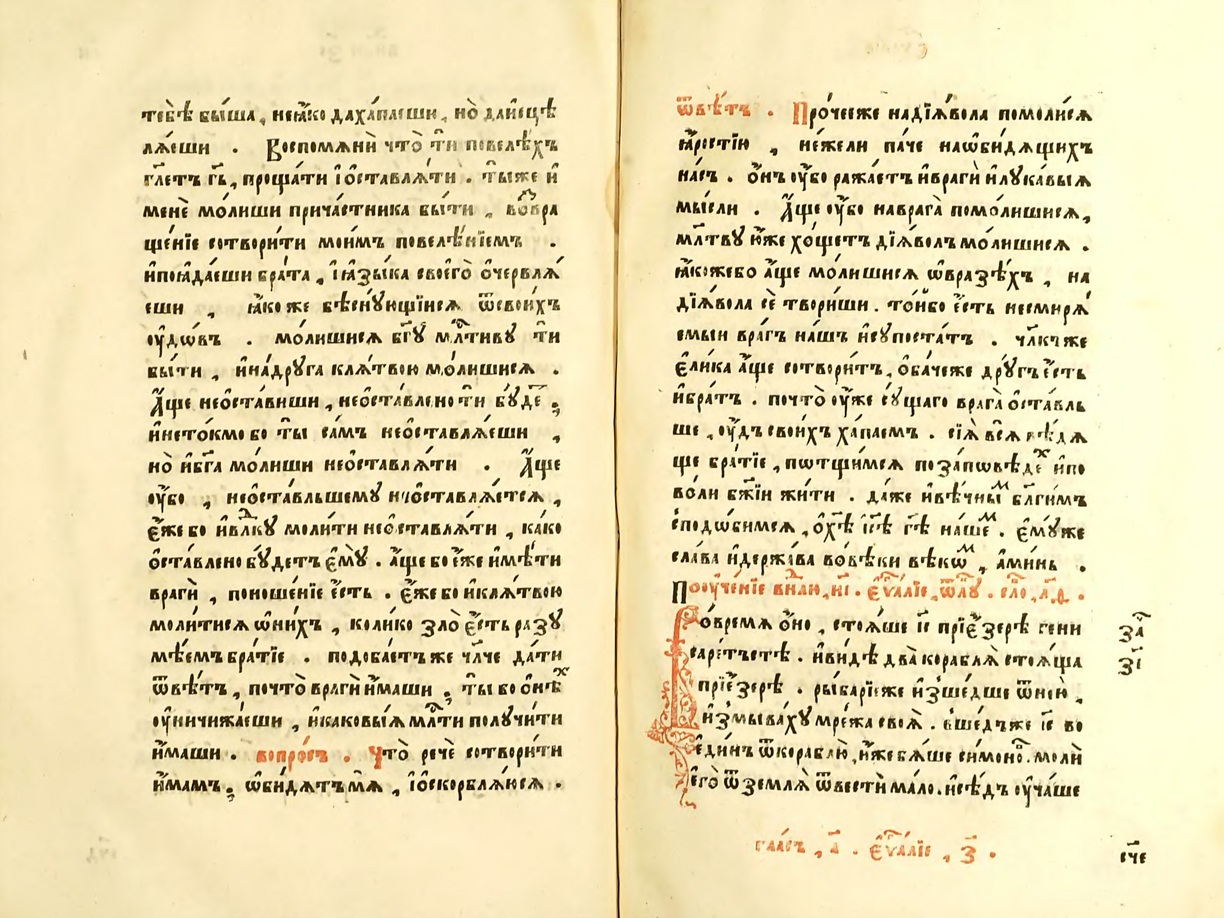 тебѣ бы́ша, неꙗ҆́ко даха́паеши, но̀ даи҆сцѣ
лѧ́еши . Воспомѧнѝ что̀ тѝ повелѣ́хъ
гл҃етъ гь҃, проща́ти і҆оставлѧ́ти . ты́же и҆
менѐ мо́лиши прича́стника бы́ти , во́вра
ще́нїе сотвори́ти мои́мъ повелѣ́нїемъ .
и҆поѧда́еши бра́та , і҆ѧзы́ка своего̀ о҆червлѧ́
еши , ꙗ҆́коже бѣсну́ющїисѧ ѿсвои́хъ
оу҆́дѡвъ . мо́лишисѧ бг҃ꙋ мл҇тивꙋ ти
бы́ти , и҆на́дрꙋга клѧ́твою мо́лишисѧ .
А҆́ще нео҆ста́виши , нео҆ста́влено ти бꙋ́де҇ ,
и҆нето́кмо бо ты̀ са́мъ нео҆ставлѧ́еши ,
но̀ и҆бг҃а мо́лиши нео҆ставлѧ́ти . А҆́ще
оу҆́бо , нео҆ста́вльшемꙋ нео҆ставлѧ́етсѧ ,
є҆́же бо и҆влⷣкꙋ моли́ти нео҆ставлѧ́ти , ка́ко
о҆ста́влено бꙋ́детъ є҆мꙋ̀ . а҆́ще бо є҆́же и҆мѣ́ти
врагѝ , поноше́нїе є҆́сть . є҆́же бо и҆клѧ́твою
моли́тисѧ ѡ҆ни́хъ , коли́ко зло̀ є҆́сть разꙋ
мѣ́емъ бра́тїе . подоба́етъ же чл҃че да́ти
ѿвѣ́тъ , почто̀ врагѝ и҆́маши , ты̀ бо о҆́нѣⷯ
оу҆ничижа́еши , и҆какові́ѧ мл҇ти получи́ти
и҆́маши . вопро́съ . Что̀ речѐ сотвори́ти
и҆́мамъ , ѡ҆би́дѧтъ мѧ̀ , і҆ѡскорблѧ́юсѧ .
ѿвѣ́тъ . Про́чееже надїѧ́вола помоли́сѧ
ꙗ҆́ростїю , не́жели па́че наѡ҆би́дѧщихъ
на́съ . о҆́нъ оу҆́бо ража́етъ и҆врагѝ и҆лꙋка́выѧ
мы́сли . А҆́ще оу҆́бо наврага̀ помо́лишисѧ,
мл҃твꙋ ю҆́же хо́щетъ дїѧ́волъ мо́лишисѧ .
ꙗ҆́коже бо а҆́ще мо́лишисѧ ѡ҆вразѣ́хъ , на
дїѧ́вола сѐ твори́ши . то́ибо є҆́сть несмирѧ́
емыи вра́гъ на́шъ и҆сꙋпоста́тъ . чл҃кчже
є҆ли́ка а҆́ще сотвори́тъ , о҆ба́чеже дрꙋ́гъ є҆́сть
и҆бра́тъ . почто̀ оу҆́же сꙋ́щаго врага̀ о҆ста́вль
ше , оу҆́дъ свои́хъ ха́паемъ . сїѧ̀ всѧ̀ вѣ́дѧ
ще бра́тїе , пѡтщи́мсѧ поза́пѡвѣдеⷯ и҆по
во́ли бж҃їи жи́ти . да́же и҆вѣ́чныⷨ бл҃ги́мъ
сподо́бимсѧ , о҆хⷭ҇ѣ і҆с҃ѣ гд҇ѣ на́шеⷨ . є҆мꙋ́же
сла́ва и҆держа́ва вовѣ́ки вѣкѡⷨ , а҆ми́нь .
Пооу҆че́нїе внⷣлю , и҃і . є҆ѵⷢ҇алїе , ѿлꙋ . сло , л҃ѳ .
Вовре́мѧ о҆́но , стоѧ́ше і҆с҃ прїе́зерѣ гени
саре́тъстѣ . и҆ви́дѣ два̀ кораблѧ̀ стоѧ́ща
прїе́зерѣ . ры́барїеже и҆зше́дше ѿнею̀ ,
и҆змыва́хꙋ мре́жа своѧ̀ . вше́дъже і҆с҃ во
є҆ди́нъ ѿкораблю̀ ,и҆́же бѧ́ше си́моноⷡ . молѝ
є҆го̀ ѿземлѧ̀ ѿвестѝ ма́ло . и҆сѣ́дъ оу҆ча́ше
за҃
з҃і
гла́съ , а҃ . є҆ѵⷢ҇алїе , з҃ .
с҃че